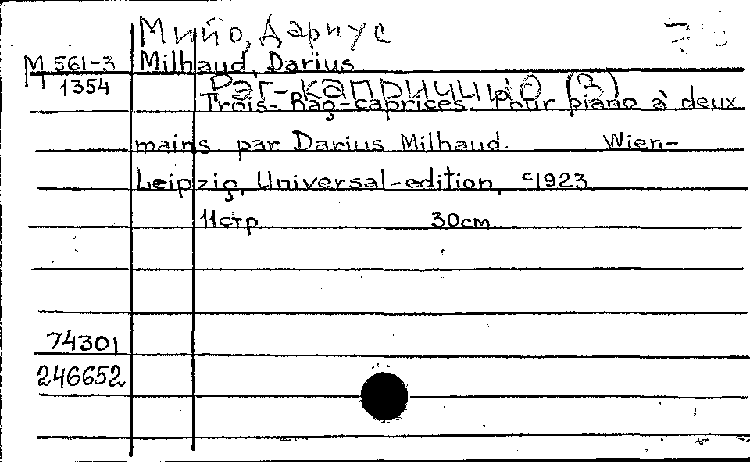 Мийо, Дариус
М 561-3 Milhaud, Darius
1354 Рэг-каприччио (3)
Trois-Rag-caprices. Pour piano à deux
mains par Darius Milhaud. Wien-
Leipzig, Universal-edition, c1923
11стр 30cm
74301
246652